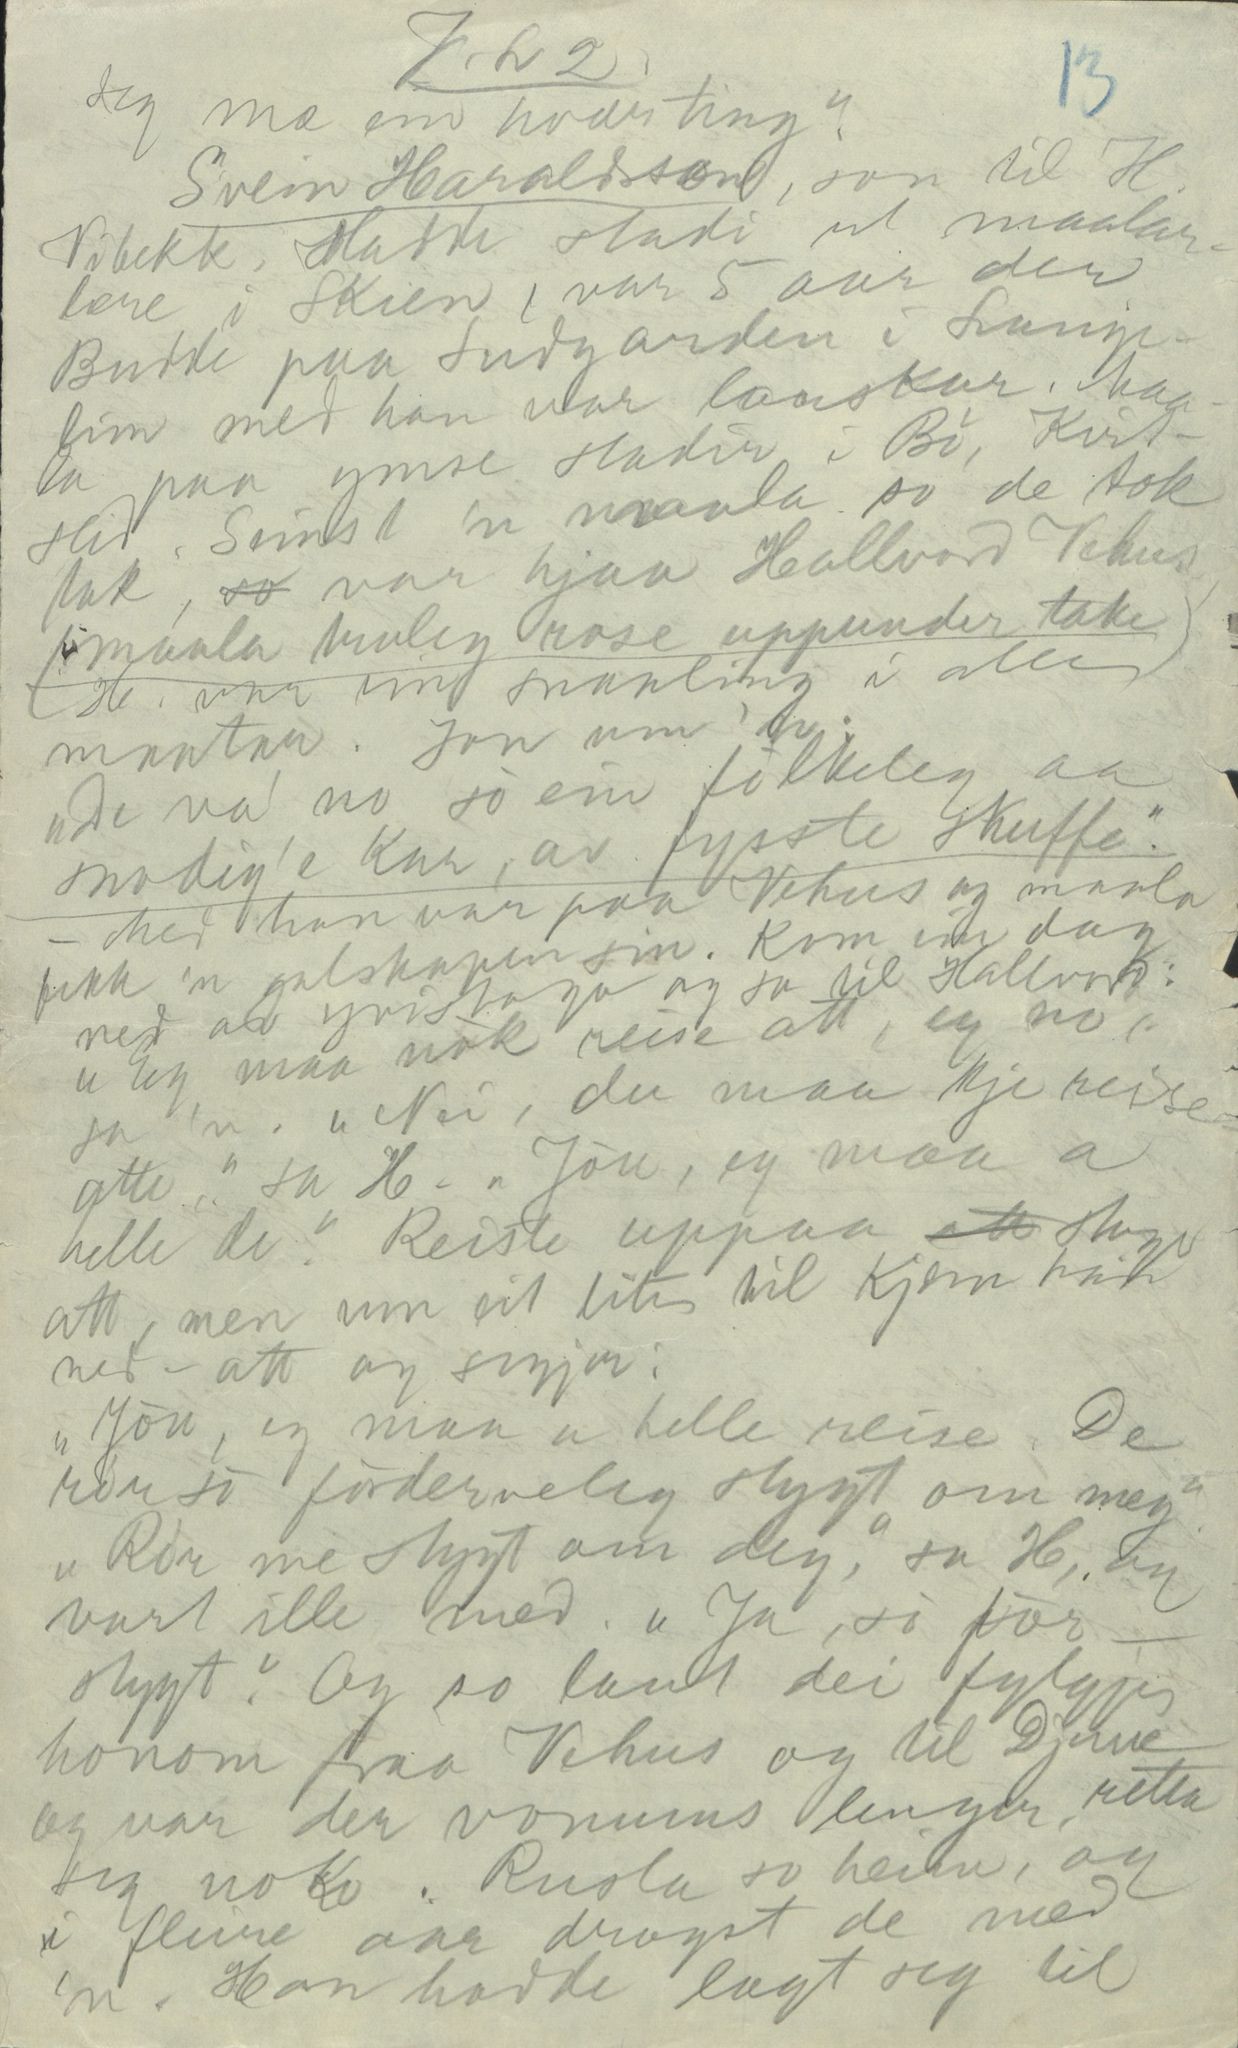 13
seg mæ ein hoderting".
Svein Haraldsson, son til H.
Nibekk. Hadde stadi ut maalar-
lære i Skien, var 5 aar der
Budde paa Sudgarden i
med han var lauskar. Maa-
la paa ymse stadir i Bø, Kvit-
seid. Sinst 'n maala so de tok
tak, so var hjaa Hallvord Vehus
(maala truleg rose uppunder take)
H. var ein snaaling i alle
maatar. Jon um 'n:
"De va no so ein fólkeleg aa
snodig'e kar, av fysste skuffe".
– Med han var paa Vehus og maala
fekk 'n galskapen sin. Kom ein dag
ned av yvistoga og sa til Hallvord:
"Eg maa nók reise att, eg no",
sa 'n. "Nei, du maa kje reise
atte," sa H. "Jóu, eg maa a
helle de." Reiste uppaa att
att, men um eit lite til kjem han
ned-att og segjer:
"Jóu, eg maa a helle reise. De
rør so fórderveleg stygt om meg"
"Rør me stygt om deg," sa H, og
vart ille med. "Ja, so
stygt". Og so laut dei fylgje
honom fraa Vehus og til Djuve
og var der vonums lenger, retta
seg noko. Rusla so heim, og
i fleire aar drogst de med
'n. Han hadde lagt seg til